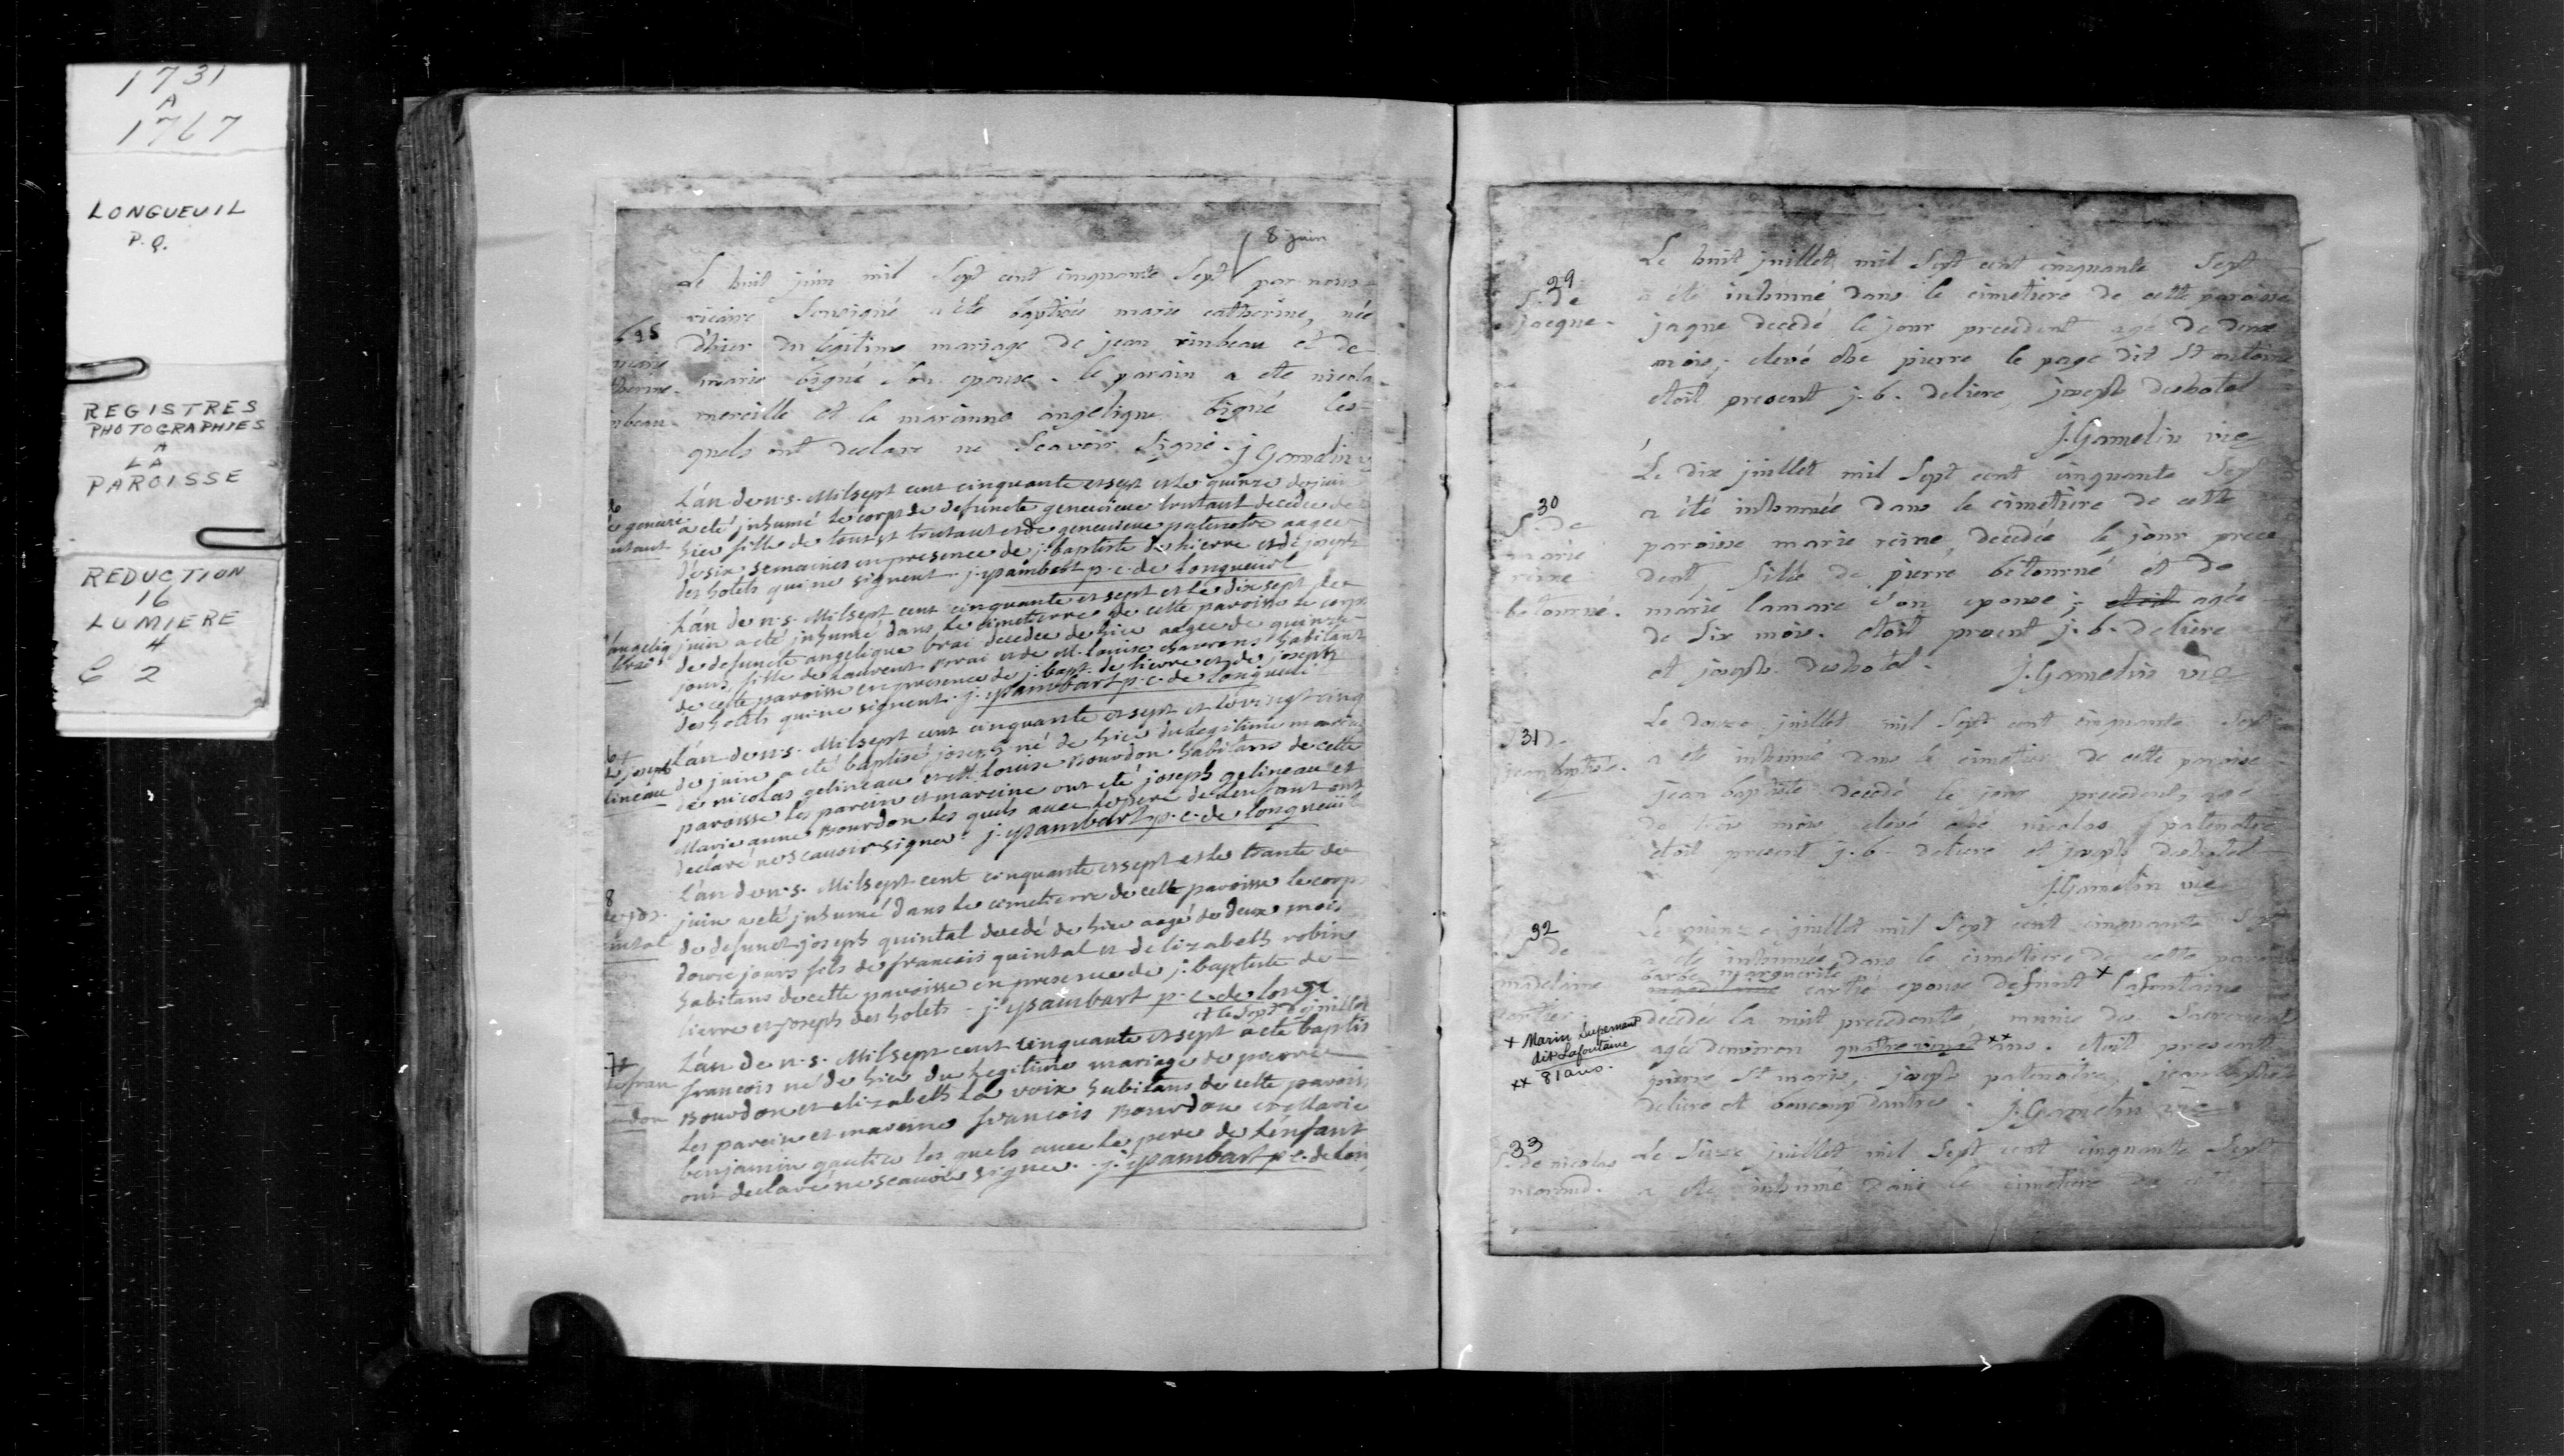 1731
A
1767
LONGUEUIL
P.Q.
REGISTRES
PHOTOGRAPHIES
A
LA
PAROISSE
REDUCTION
16
LUMIERE
4
C 2
8 juin
Le huit juin mil Sept cent cinquante Sept par nous
vicaire Sousigné a été baptisée marie catherine, née
d'hier du légitime mariage de jean rinbeau et de
marie bigné son epouse. le parain a ete nicola
merceille et la maranne angelique bigné les
quels ont declare ne Scavoir Signé. j Gamelin
L'an de n.s. Milsept cent cinquante et sept et le quinze de juin
a eté jnhumé le corps de defuncte genevieve trutaut decedee de
hier fille de tousst trutaut et de genevieve patenotre aagee
de six semaines en presence de j. baptiste de lierre et de joseph
des hotels qui ne signent. j. ysambart p. c. de longueuil
L'an de n.s. Milsept cent cinquante et sept et le dix sept de
juin a eté jnhumé dans le cimetierre de cette paroisse le corps
de defuncte angelique brai decedee de hier aagee de quinze
jours fille de Laurent brai et de M. louise chavrons habitant
de cette paroisse en presence de j. bapt. de lierre et de joseph
des hotels qui ne signent. j. ysambart p. c. de longueuil
L'an de n.s. Milsept cent cinquante et sept et le vingt cinq
de juin a eté baptisé joseph né de hier du legitime maria
de nicolas gelineau et M. louise Bourdon habitans de cette
paroisse les parein et mareine ont eté joseph gelineau et
Marie anne Bourdon les quels avec le pere de l'enfant ont
declaré ne scavoir signer. j. ysambart p. c. de longueuil
L'an de n.s. Milsept cent cinquante et sept et le trante de
juin a eté jnhumé dans le cimetierre de cette paroisse le corp
de defunct joseph quintal decedé de hier aagé de deux mois
douze jours fils de francois quintal et de elizabeth robin
habitans de cette paroisse en presence de j. baptiste de
lierre et joseph des hotels. j. ysambart p. c. de longe
et le sept de juillet
L'an de n.s. Milsept cent cinquante et sept a eté baptis
francois né de hier du legitime mariage de pierre
Bourdon et elizabeth la voix habitans de cette parois
les parein et mareine francois Bourdon et Marie
benjamin gautier les quels avec le pere de l'enfant
ont declaré ne scavoir signer. j. ysambart p. c. de lon
29
S. de
jacque.
Le huit juillet mil Sept cent cinquante Sept
a été inhumé dans le cimetiere de cette paroisse
jaque decedé le jour precedent agé de deux
mois, elevé ché pierre le page dit St antoine
etoit present j. b. deliere joseph deshotel
J. Gamelin vic
30
S. de
marie
reine
betourné.
Le dix juillet mil Sept cent cinquante Sept
a été inhumée dans le cimetiere de cette
paroisse marie reine, decedée le jour prece
dent, fille de pierre bétourné et de
marie lamare Son epouse; etoit agée
de Six mois. etoit present j. b. deliere
et joseph deshotel. J. Gamelin vic
31
jean baptiste.
Le douze juillet mil Sept cent cinquante Sept
a ete inhumé dans le cimetiere de cette paroisse
jean baptiste decedé le jour precedent, agé
de mois elevé ché nicolas patenotre
etoit present j. b. deliere et joseph deshotel
J. Gamelin vic
32
S. de
madelaine
cartier
Le quinze juillet mil Sept cent cinquante Sept
a ete inhumée dans le cimetiere de cette paroisse
barbe marguerite
cartié epouse defunt x lafontaine
décedée la nuit precedente, munie des Sacrements
agée d'environ quatre vingt xx ans. etoit present
pierre St marie, joseph patenotre, jean baptiste
deliere et beaucoup d'autres. J. Gamelin vic
+ Marin Supernant
dit Lafontaine
xx 81 ans.
33
S. de nicolas
Le Seize juillet mil Sept cent cinquante Sept
a ete inhumé dans le cimetiere de